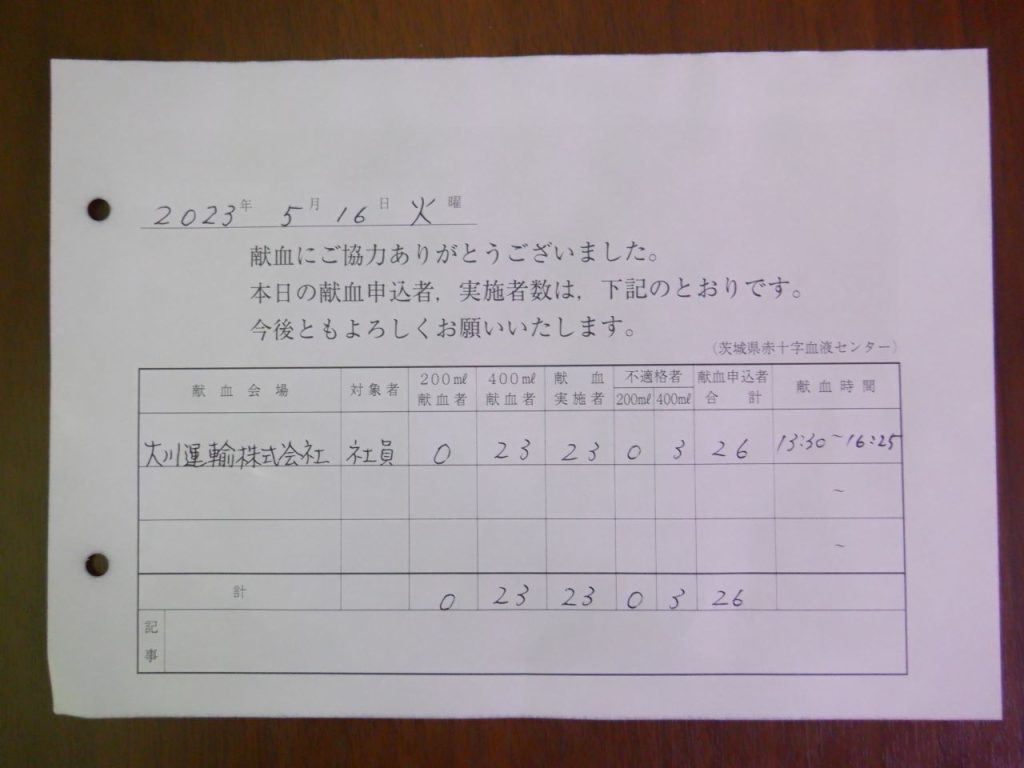 2023年 5月 16日 火曜
献血にご協力ありがとうございました。
本日の献血申込者，実施者数は，下記のとおりです。
今後ともよろしくお願いいたします。
（茨城県赤十字血液センター）
献血会場 対象者 200㎖献血者 400㎖献血者 献血実施者 不適格者 200㎖ 400㎖ 献血申込者合計 献血時間
大川運輸株式会社 社員 0 23 23 0 3 26 13:30～16:25
～
～
計 0 23 23 0 3 26
記事